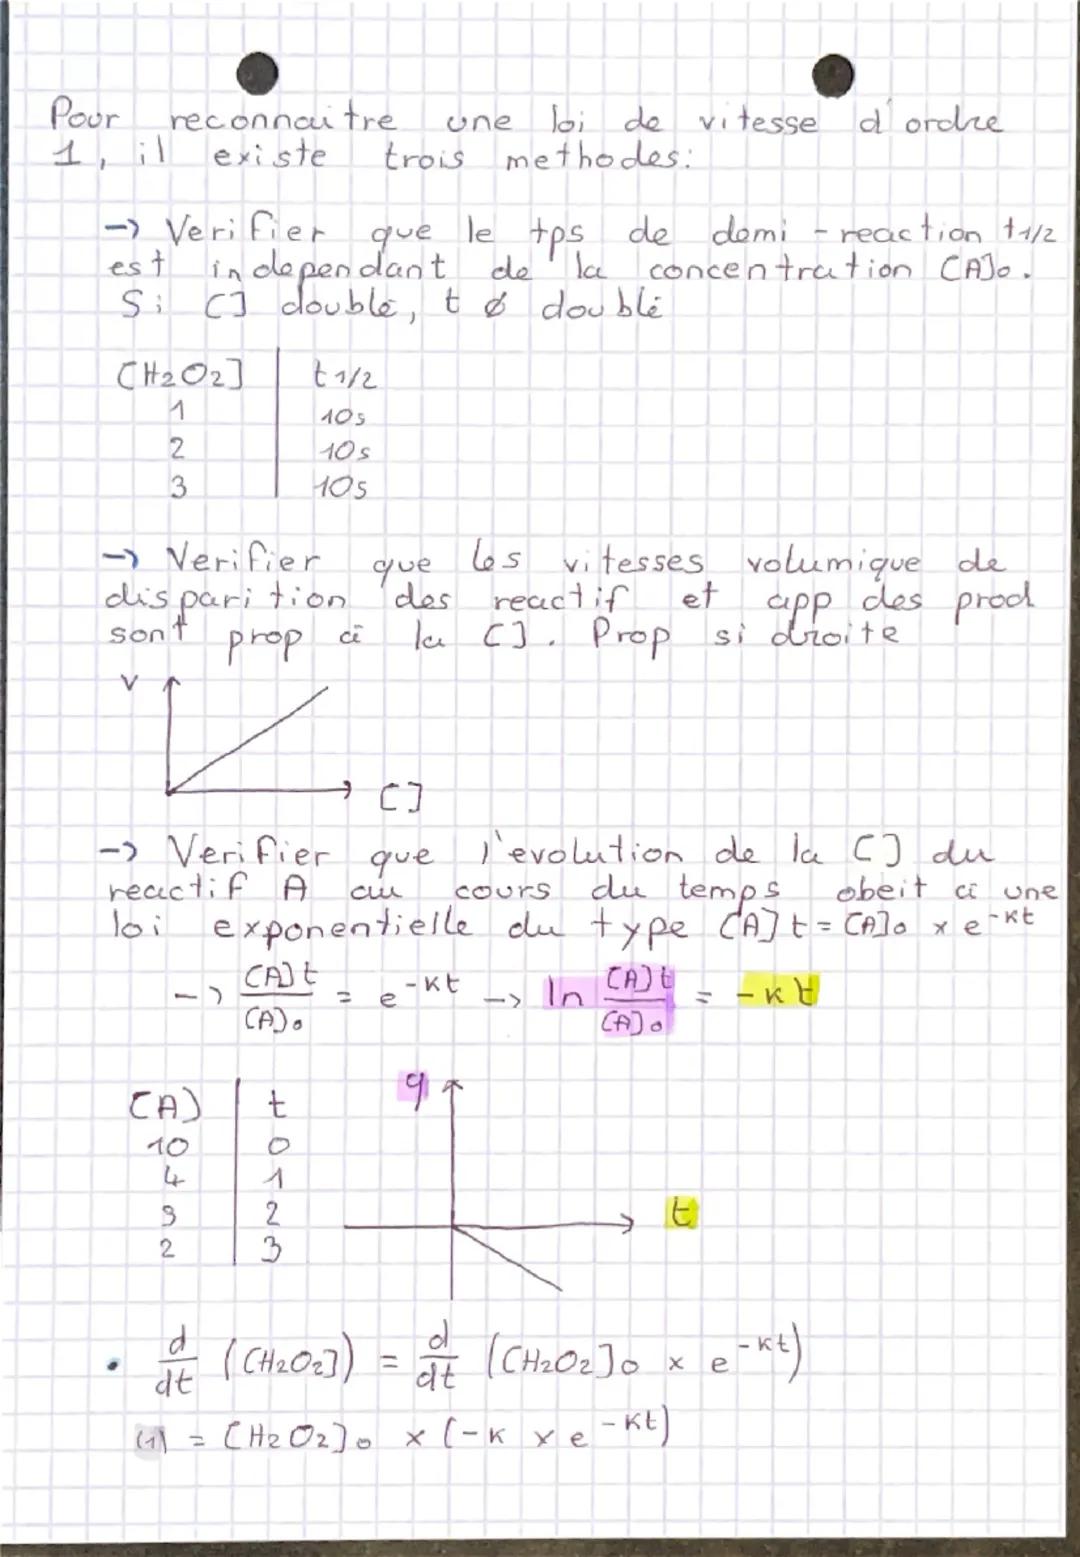 Pour reconnaitre une loi de vitesse d'ordre
1, il existe trois methodes:
-> Verifier que le tps de demi-reaction t1/2
est independant de la concentration [A]0.
Si [] doublé, t Ø doublé
[H2O2] | t1/2
1 10s
2 10s
3 10s
-> Verifier que les vitesses volumique de
disparition des reactif et app des prod
sont prop à la []. Prop si droite
v
[]
-> Verifier que l'evolution de la [] du
reactif A au cours du temps obeit à une
loi exponentielle du type [A]t = [A]0 x e^-kt
-> [A]t/[A]0 = e^-kt -> ln [A]t/[A]0 = -kt
[A] | t
10 0
4 1
3 2
2 3
y
t
• d/dt ([H2O2]) = d/dt ([H2O2]0 x e^-kt)
(1) = [H2O2]0 x (-k x e^-kt)